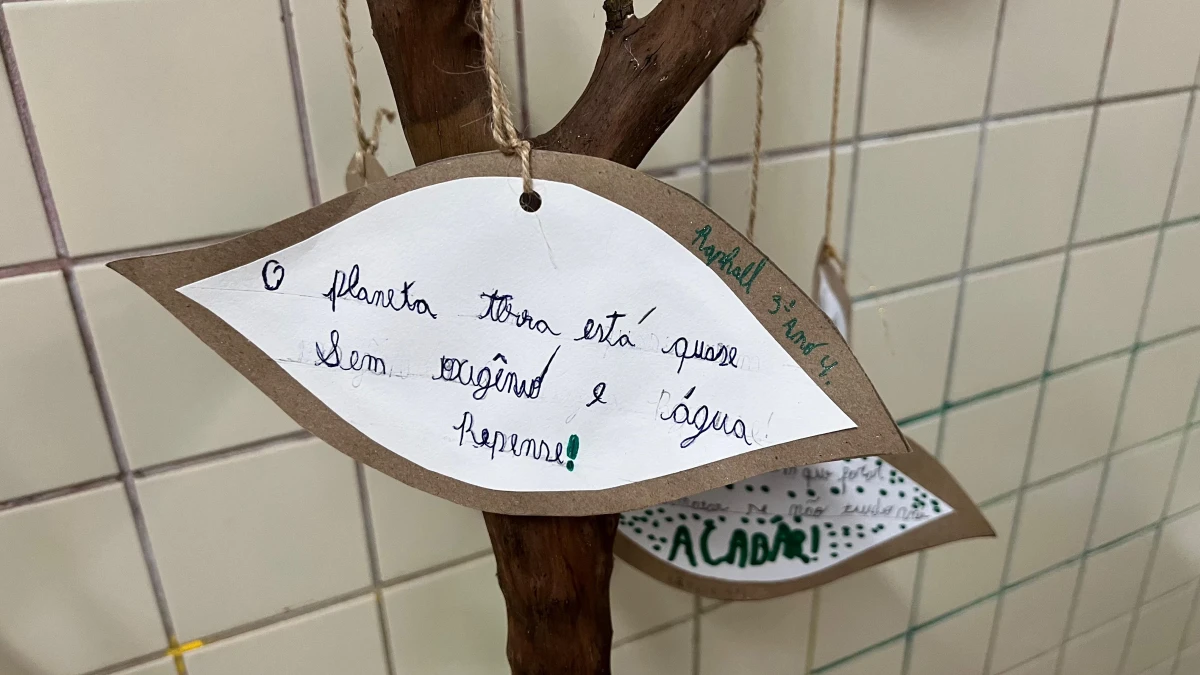 O planeta terra está quase
Sem oxigênio e água
Repense!
Raphall 3º Ano 4.
se não
ACABAR!